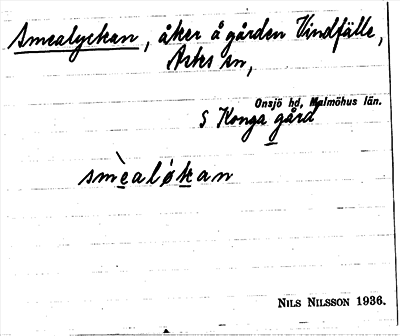 Smealyckan, åker å gården Vindfälle,
Asks sn,
Onsjö hd, Malmöhus län.
S Konga gård
smèalókan
NILS NILSSON 1936.